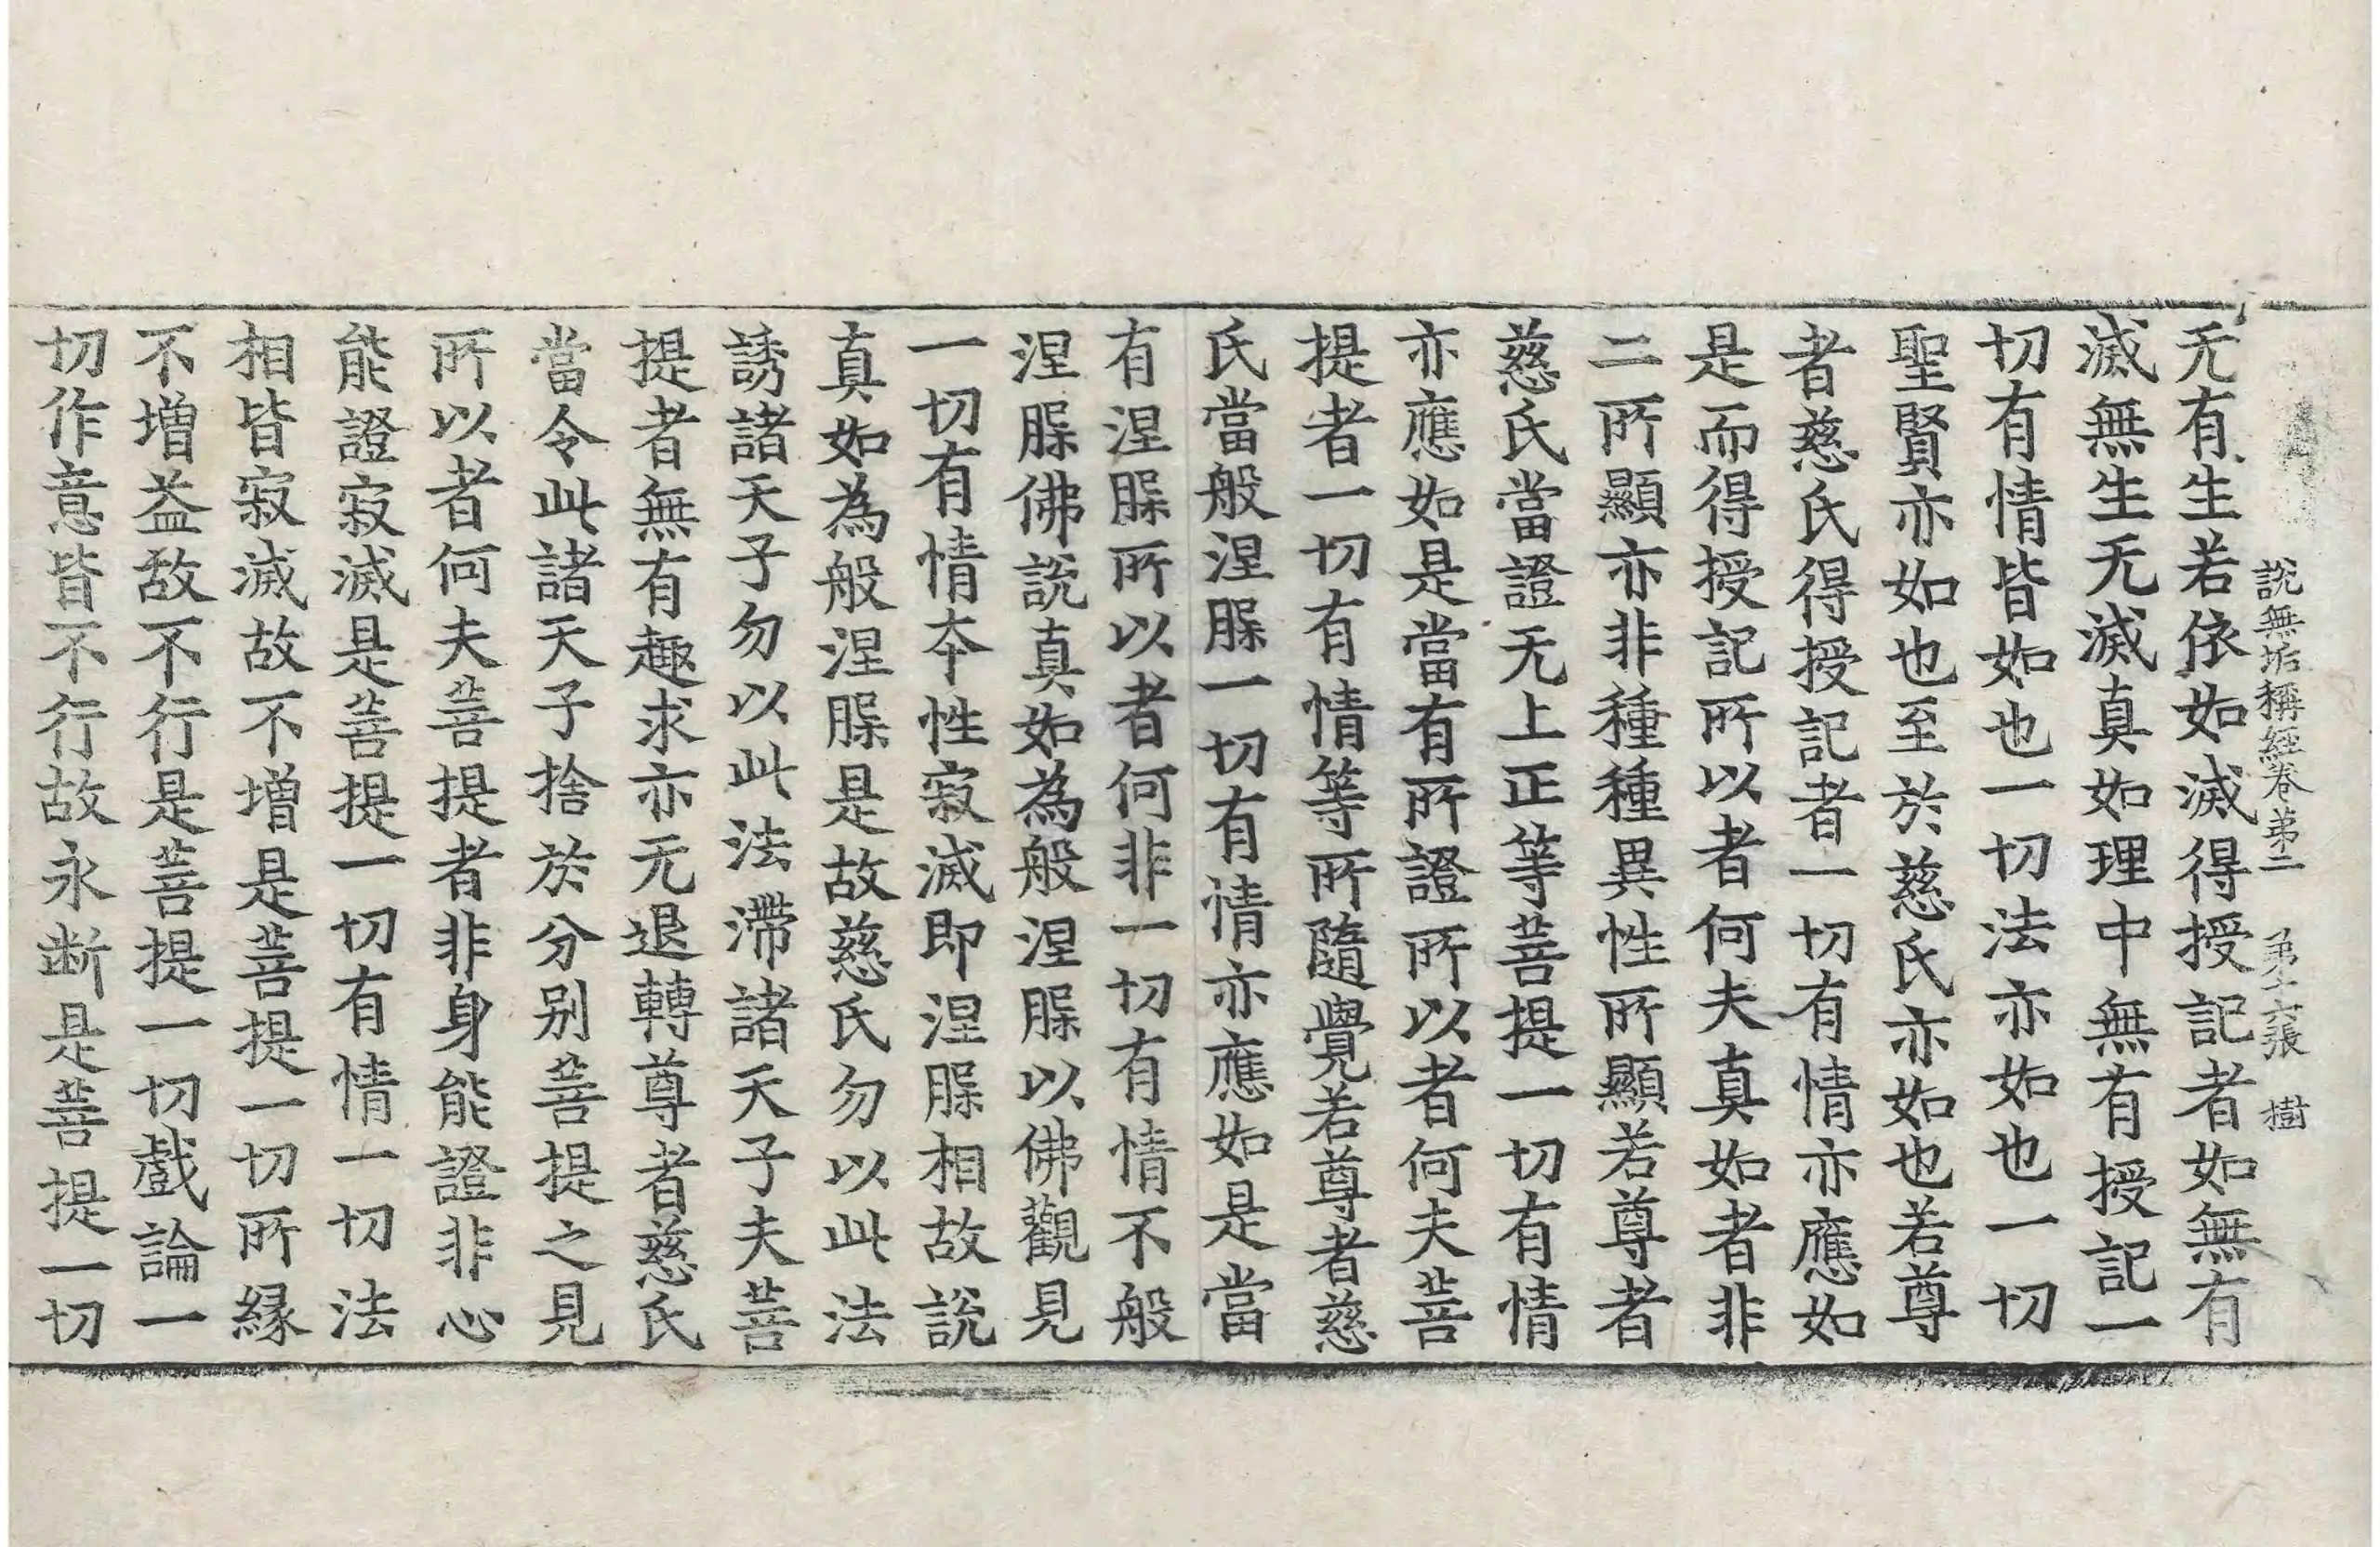 說無垢稱經卷苐二　苐十六張　樹
无有生若依如滅得授記者如無有
滅無生无滅真如理中無有授記一
切有情皆如也一切法亦如也一切
聖賢亦如也至於慈氏亦如也若尊
者慈氏得授記者一切有情亦應如
是而得授記所以者何夫真如者非
二所顯亦非種種異性所顯若尊者
慈氏當證无上正等菩提一切有情
亦應如是當有所證所以者何夫菩
提者一切有情等所隨覺若尊者慈
氏當般涅䏶一切有情亦應如是當
有涅䏶所以者何非一切有情不般
涅䏶佛說真如為般涅䏶以佛觀見
一切有情夲性寂滅即涅䏶相故說
真如為般涅䏶是故慈氏勿以此法
誘諸天子勿以此法滯諸天子夫菩
提者無有趣求亦无退轉尊者慈氏
當令此諸天子捨於分别菩提之見
所以者何夫菩提者非身能證非心
能證寂滅是菩提一切有情一切法
相皆寂滅故不增是菩提一切所緣
不增益故不行是菩提一切戲論一
切作意皆不行故永断是菩提一切